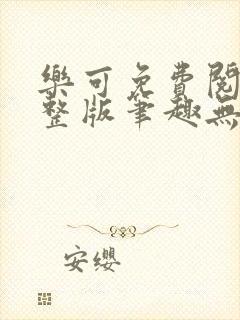 樂可免費閱
整版筆趣無
安缨